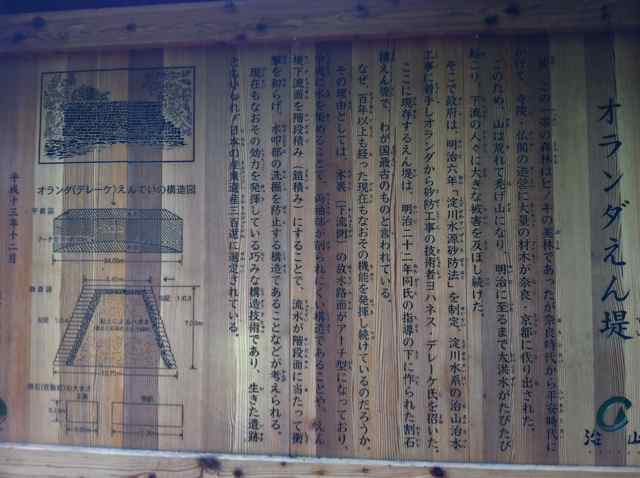 オランダえん堤
昔、この一帯の森林はヒノキの美林であったが奈良時代から平安時代に
かけて、寺院・仏閣の造営に大量の材木が奈良・京都に伐り出された。
このため、山は荒れて禿げ山になり、明治に至るまで大洪水がたびたび
起こり、下流の人々に大きな被害を及ぼし続けた。
そこで政府は、明治六年「淀川水源砂防法」を制定。淀川水系の治山治水
工事に着手しオランダから砂防工事の技術者ヨハネス・デレーケ氏を招いた。
ここに現存するえん堤は、明治二十二年同氏の指導の下に作られた割石
積えん堤で、わが国最古のものと言われている。
なぜ、百年以上も経った現在もなおその機能を発揮し続けているのだろうか。
その理由としては、水裏(下流側)の放水路面がアーチ型になっており、
水を集めることで、両袖部が削られにくい構造であることや、えん
堤下流面を階段積み(鎧積み)にすることで、流水が階段面に当たって衝
撃を和らげ、水叩部の洗掘を防止する構造であることなどが考えられる。
現在もなおその効力を発揮している巧みな構造技術であり、生きた遺跡
日本の産業遺産三百選に選定されている。
オランダ(デレーケ)えんていの構造図
平面図
平成十三年十二月
治山